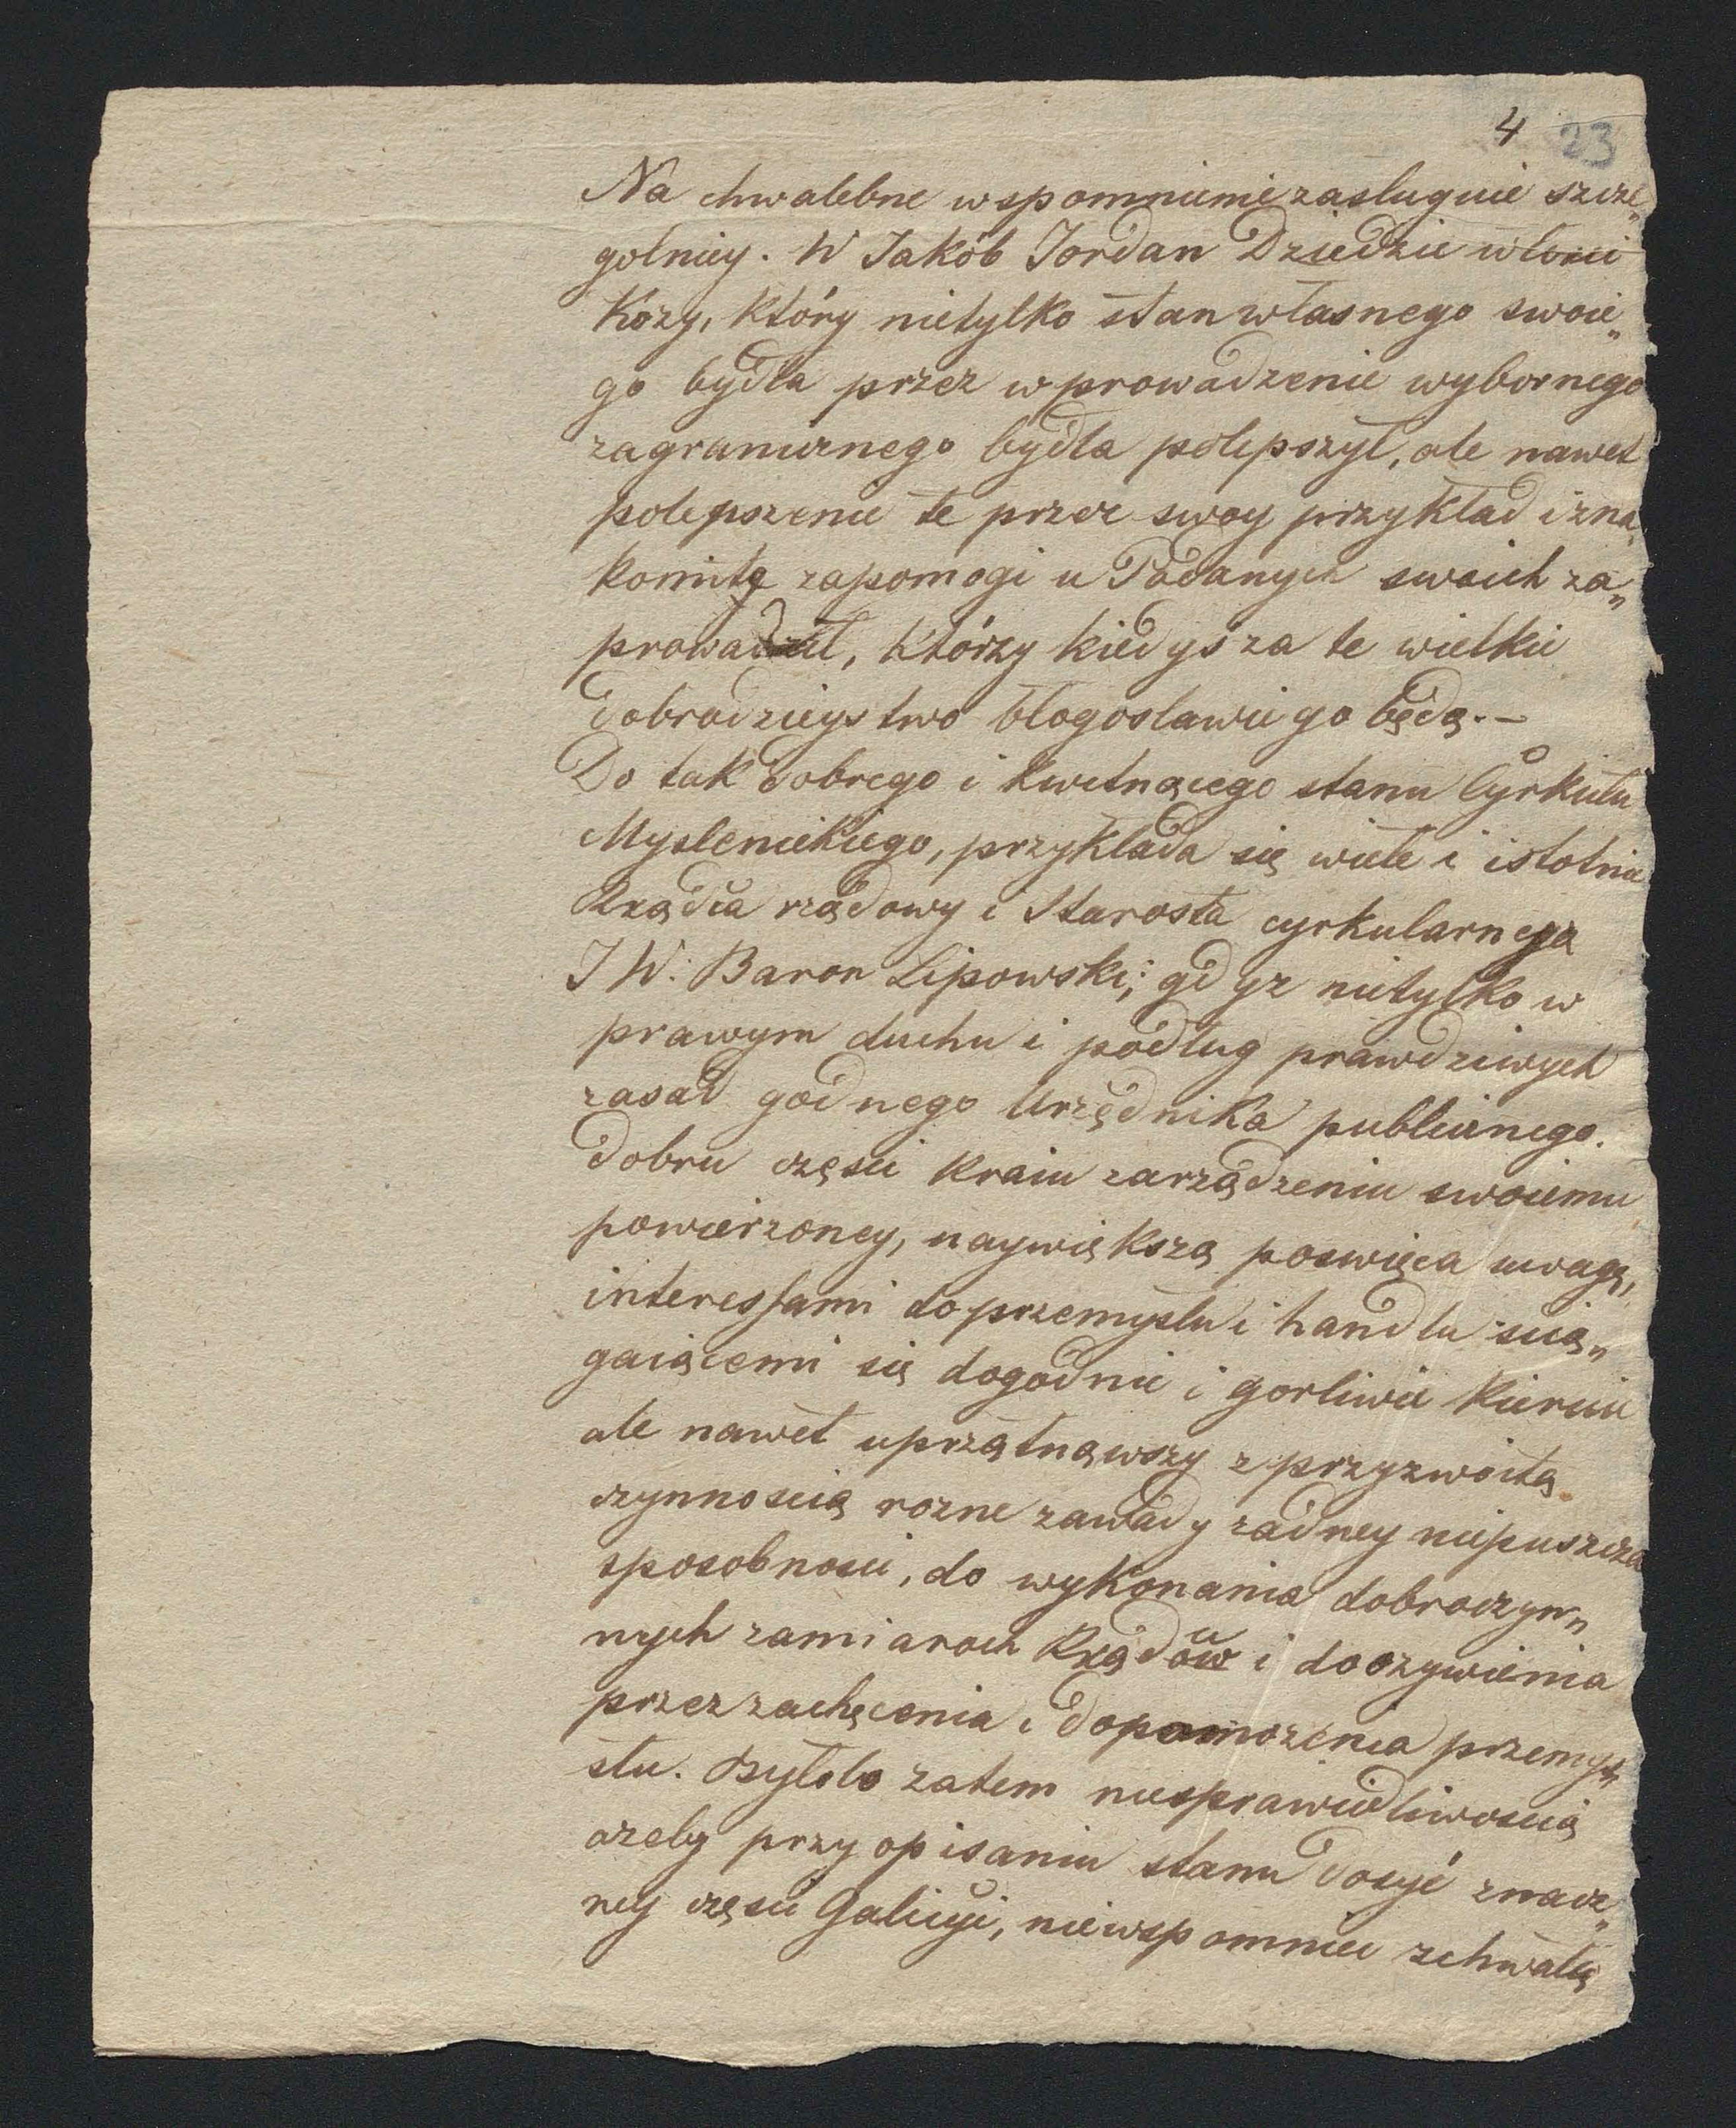 4 23
Na chwalebne wspomnienie zasluguie szcze„
golniey. W Jakób Jordan Dziedzic włosci
Kozy, który nietylko stan własnego swoie„
go bydła przez wprowadzenie wybornego
zagranicznego bydła polepszył, ale nawet
polepszenie te przez swoy przykład i zna„
komitę zapomogi u Podanych swoich za„
prowadził, którzy kiedyś za te wielkie
dobrodzieystwo błogoslawić go będą. –
Do tak dobrego i kwitnącego stanu Cyrkułu
Myslenickiego, przykłada się wiele i istotnie
Rządca rządowy i Starosta cyrkularnego
JW: Baron Lipowski; gdyz nietylko w
prawym duchu i podług prawdziwych
zasad godnego Urzędnika publicznego.
dobru częsci kraiu zarządzeniu swoiemu
powierzoney, naywiększą poswięca uwagę,
interessami do przemysłu i handlu scią„
gaiącemi się dogodnie i gorliwie kieruie
ale nawet uprzątnąwszy z przyzwoitą
czynnoscią rozne zawady zadney niepuszcza
sposobnosci, do wykonania dobroczyn„
nych zamiarach Rządów i do ozywienia
przez zachęcenia i dopomozenia przemy„
słu. Byłolo zatem niesprawiedliwoscią
azeby przy opisaniu stanu dosyć znacz„
ney częsci Galicyi, niewspomniec zchwałą